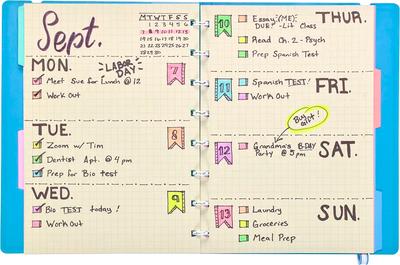 Sept.
M T W T F S S
1 2 3 4 5 6
7 8 9 10 11 12 13
14 15 16 17 18 19 20
21 22 23 24 25 26 27
28 29 30
MON.
LABOR DAY
7
Meet Sue for Lunch @ 12
Work Out
TUE.
8
Zoom w/ Tim
Dentist Apt. @ 4 pm
Prep for Bio test
WED.
9
Bio TEST today!
Work out
10
THUR.
Essay (ME)
DUE! - Lit Class
Read Ch. 2 - Psych
Prep Spanish Test
11
FRI.
Spanish TEST!
Work Out
Buy gift!
12
SAT.
Grandma's B-DAY
Party @ 5 pm
13
SUN.
Laundry
Groceries
Meal Prep